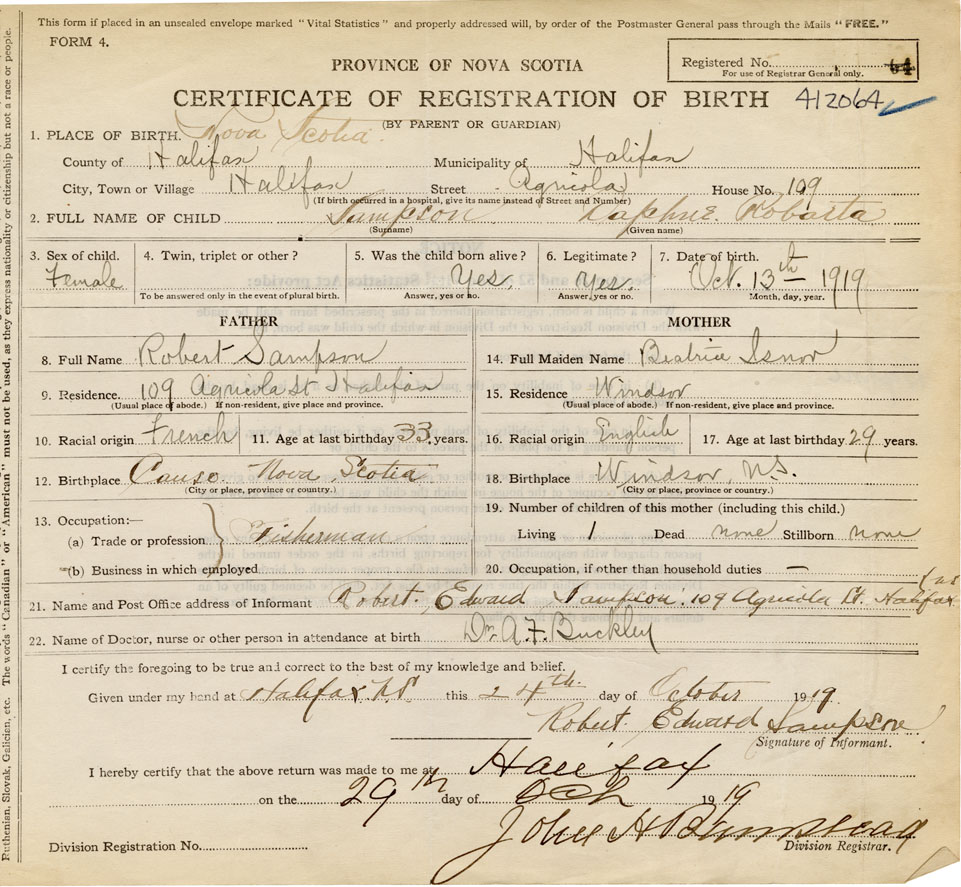 This form if placed in an unsealed envelope marked "Vital Statistics" and properly addressed will, by order of the Postmaster General pass through the Mails "FREE."
FORM 4.
Registered No. 64
For use of Registrar General only.
PROVINCE OF NOVA SCOTIA
CERTIFICATE OF REGISTRATION OF BIRTH 412064
(BY PARENT OR GUARDIAN)
1. PLACE OF BIRTH. Nova Scotia.
County of Halifax Municipality of Halifax
City, Town or Village Halifax Street Agricola House No. 109
(If birth occurred in a hospital, give its name instead of Street and Number)
2. FULL NAME OF CHILD Sampson Daphne. Robarta
(Surname) (Given name)
3. Sex of child. 4. Twin, triplet or other? 5. Was the child born alive? 6. Legitimate? 7. Date of birth.
Female Yes. Yes. Oct. 13th 1919
To be answered only in the event of plural birth. Answer, yes or no. Answer, yes or no. Month, day, year.
FATHER MOTHER
8. Full Name Robert Sampson 14. Full Maiden Name Beatrice Isnor
9. Residence. 109 Agricola St Halifax 15. Residence Windsor
(Usual place of abode.) If non-resident, give place and province. (Usual place of abode.) If non-resident, give place and province.
10. Racial origin French 11. Age at last birthday 33 years. 16. Racial origin English 17. Age at last birthday 29 years.
12. Birthplace Canso. Nova Scotia 18. Birthplace Windsor, N.S.
(City or place, province or country.) (City or place, province or country.)
13. Occupation:— 19. Number of children of this mother (including this child.)
(a) Trade or profession Fisherman Living 1 Dead none Stillborn none
(b) Business in which employed 20. Occupation, if other than household duties —
21. Name and Post Office address of Informant Robert. Edward Sampson. 109 Agricola St. Halifax
22. Name of Doctor, nurse or other person in attendance at birth Dr. A. F. Buckley
I certify the foregoing to be true and correct to the best of my knowledge and belief.
Given under my hand at Halifax N.S. this 24th. day of October 1919
Robert Edward Sampson
Signature of Informant.
I hereby certify that the above return was made to me at Halifax
on the 29th day of Oct 1919
John H
Division Registration No. Division Registrar.
Ruthenian, Slovak, Galician, etc. The words "Canadian" or "American" must not be used, as they express nationality or citizenship but not a race or people.